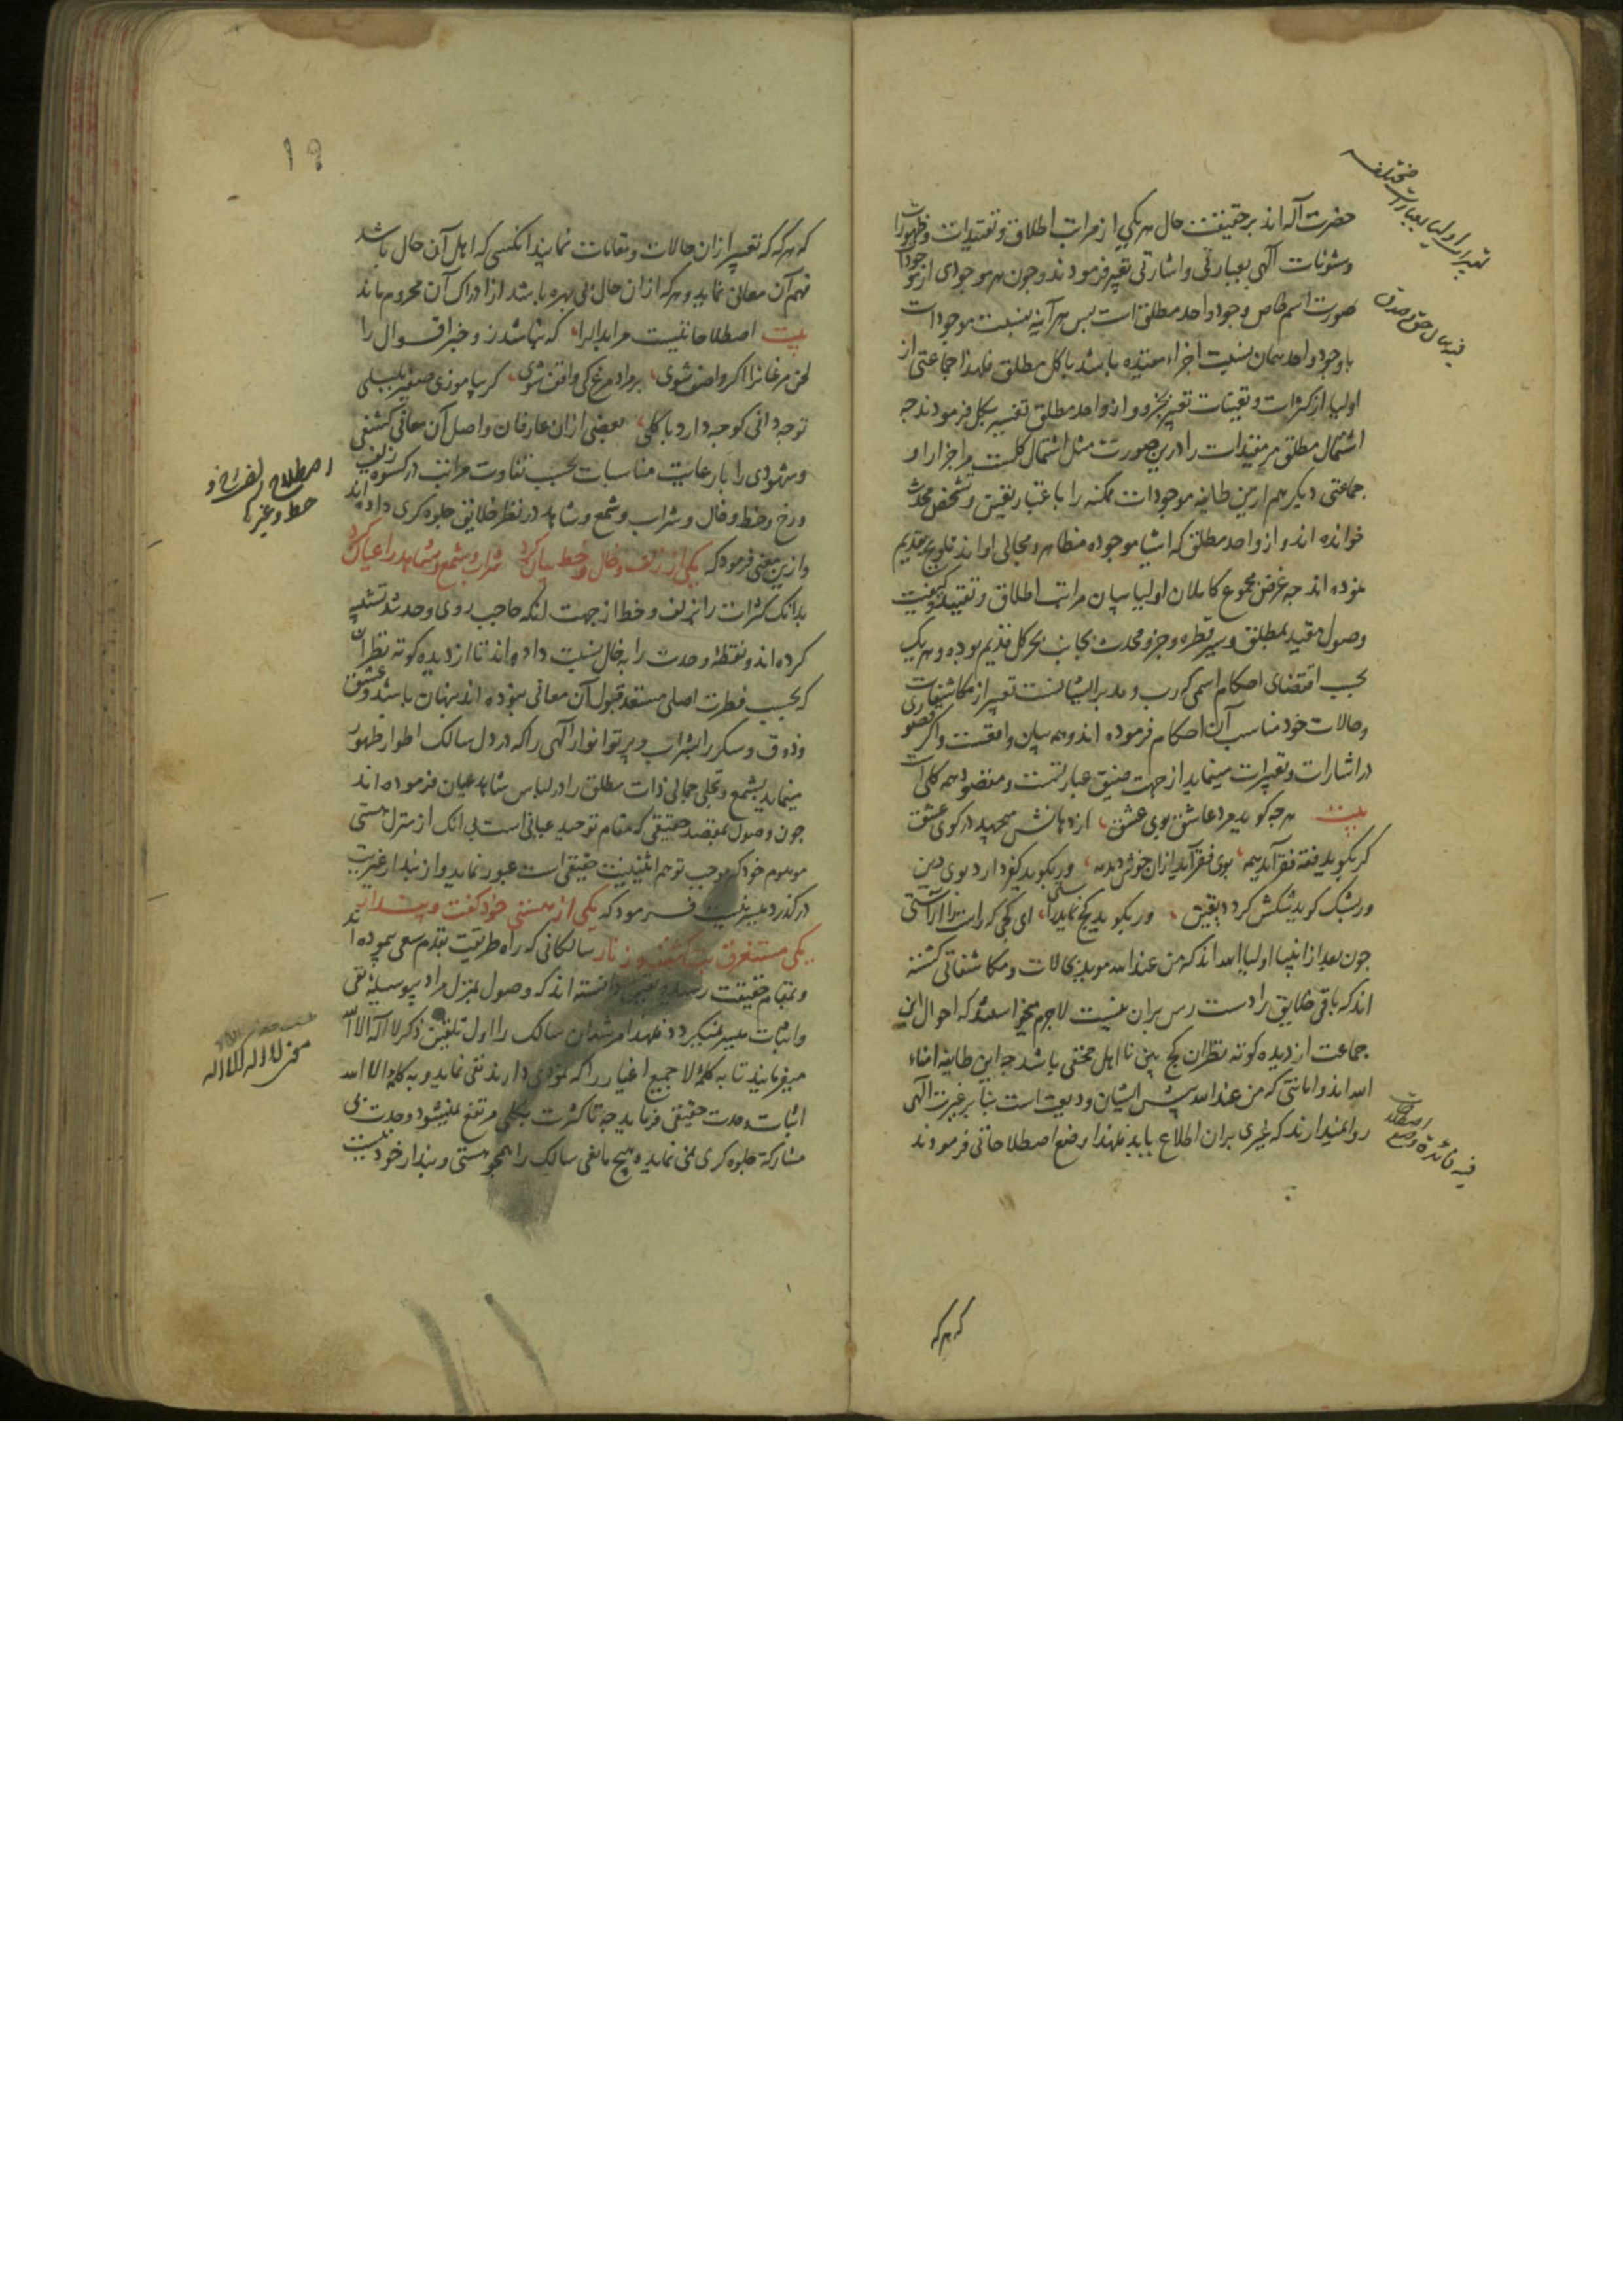 حضرت آله اند بر حقیقت حال هر یکی از مراتب اطلاق و تقییدات و ظهورات
و شئونات آلهی بعبارتی و اشارتی تعبیر فرمودند و چون هر موجودی از موجودات
صورت اسم خاص وجود واحد مطلق است پس هر آینه نسبت موجودات
با وجود واحد همان نسبت اجزاء مقیده باشد با کل مطلق فلهذا جماعتی از
اولیا از کثرات و تعینات تعبیر بجزو و از واحد مطلق تعبیر بکل فرمودند چه
اشتمال مطلق مر مقیدات را درین صورت مثل اشتمال کلست مر اجزا را و
جماعتی دیگر هم ازین طایفه موجودات ممکنه را باعتبار تعین و تشخص محدث
خوانده اند و از واحد مطلق که اشیا موجوده مظاهر و مجالی اواند تلویح بقدیم
نموده اند چه غرض مجموع کاملان اولیا بیان مراتب اطلاق و تقیید و کیفیت
وصول مقید بمطلق و سیر قطره و جزو محدث بجانب بحر کل قدیم بوده و هر یک
بحسب اقتضای احکام اسمی که رب و مدبر ایشانست تعبیر از مکاشفات
و حالات خود مناسب آن احکام فرموده اند و همه بیان واقعست و اگر قصوری
در اشارات و تعبیرات مینماید از جهت ضیق عبارتست و مقصود همه کلی است
بیت هر چه گوید مرد عاشق بوی عشق از دهانش میجهد در کوی عشق
گر بگوید فقه فقر آید همه بوی فقر آید ازان خوش دمدمه ور بگوید کفر دارد بوی دین
ور بشک گوید شکش گردد یقین ور بگوید کج نماید راستی ای کجی که راست را آراستی
چون بعد از انبیا اولیاء الله اند که من عند الله موید بحالات و مکاشفاتی گشته
اند که باقی خلایق را دست رس بران نیست لاجرم میخواستند که احوال این
جماعت از دیده کوته نظران کج بین نا اهل مخفی باشد چه این طایفه امناء
الله اند و امانتی که من عند الله پیش ایشان ودیعت است بنا بر غیرت آلهی
روا نمیدارند که غیری بران اطلاع یابد فلهذا وضع اصطلاحاتی فرمودند
تعبیرات اولیا بعبارات مختلفه
فیه فائده وضع اصطلاحات
که هر که
۱۹
که هر که که تعبیر ازان حالات و مقامات نمایند انکسی که اهل آن حال باشد
فهم آن معانی نماید و هر که ازان حال بی بهره باشد از ادراک آن محروم ماند
بیت اصطلاحاتیست مر ابدال را که نباشد زو خبر اقوال را
لحن مرغانرا اگر واصف شوی بر مراد مرغ کی واقف شوی گر بیاموزی صفیر بلبلی
تو چه دانی کو چه دارد با گلی بعضی ازان عارفان واصل آن معانی کشفی
و شهودی را با رعایت مناسبات بحسب تفاوت مراتب در کسوه زلف
و رخ و خط و خال و شراب و شمع و شاهد در نظر خلایق جلوه گری داده اند
و ازین معنی فرمود که یکی از زلف و خال و خط بیان کرد شراب و شمع و شاهد را عیان کرد
بدانک کثرات را بزلف و خط از جهت انکه حاجب روی وحدتند تشبیه
کرده اند و نقطه وحدت را به خال نسبت داده اند تا از دیده کوته نظران
که بحسب فطرت اصلی مستعد قبول آن معانی نبوده اند پنهان باشد و عشق
و ذوق و سکر را بشراب و پرتو انوار آلهی را که در دل سالک اطوار ظهور
مینماید بشمع و تجلی جمالی ذات مطلق را در لباس شاهد عیان فرموده اند
چون وصول بمقصد حقیقی که مقام توحید عیانی است بی انک از منزل هستی
موهوم خود که موجب توهم اثنینیت حقیقی است عبور نماید و از پندار غیریت
درگذرد میسر نیست فرمود که یکی از هستی خود گفت و پندار
یکی مستغرق بت گشت و زنار سالکانی که راه طریقت بقدم سعی پیموده اند
و بمقام حقیقت رسیده بیقین دانسته اند که وصول بمنزل مراد بی وسیله نفی
و اثبات میسر نمیگردد فلهذا مرشدان سالک را اول تلقین ذکر لا اله الا الله
میفرمایند تا به کلمه لا جمیع اغیار را که نمودی دارند نفی نماید و به کلمه الا الله
اثبات وحدت حقیقی فرماید چه تا کثرت بکلی مرتفع نمیشود وحدت بی
مشارکه جلوه گری نمی نماید و هیچ مانعی سالک را همچو هستی و پندار خود نیست
اصطلاح زلف و رخ و
خط و غیرها
معنی لا اله الا الله